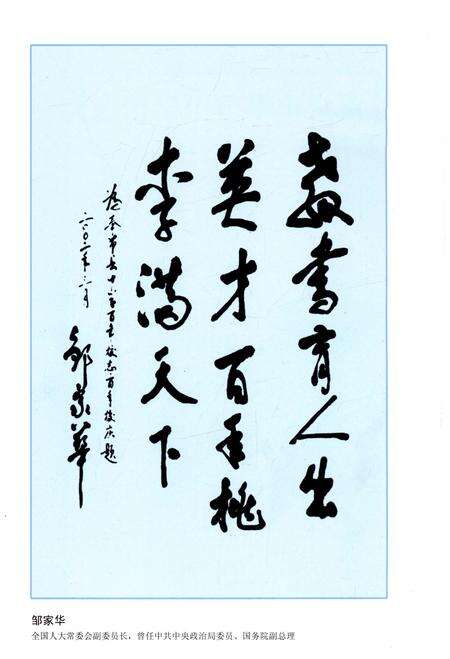 教书育人出
英才百年桃
李满天下
为泰中长十六百年校庆题
二〇〇二年二月
邹家华
邹家华
全国人大常委会副委员长，曾任中共中央政治局委员、国务院副总理